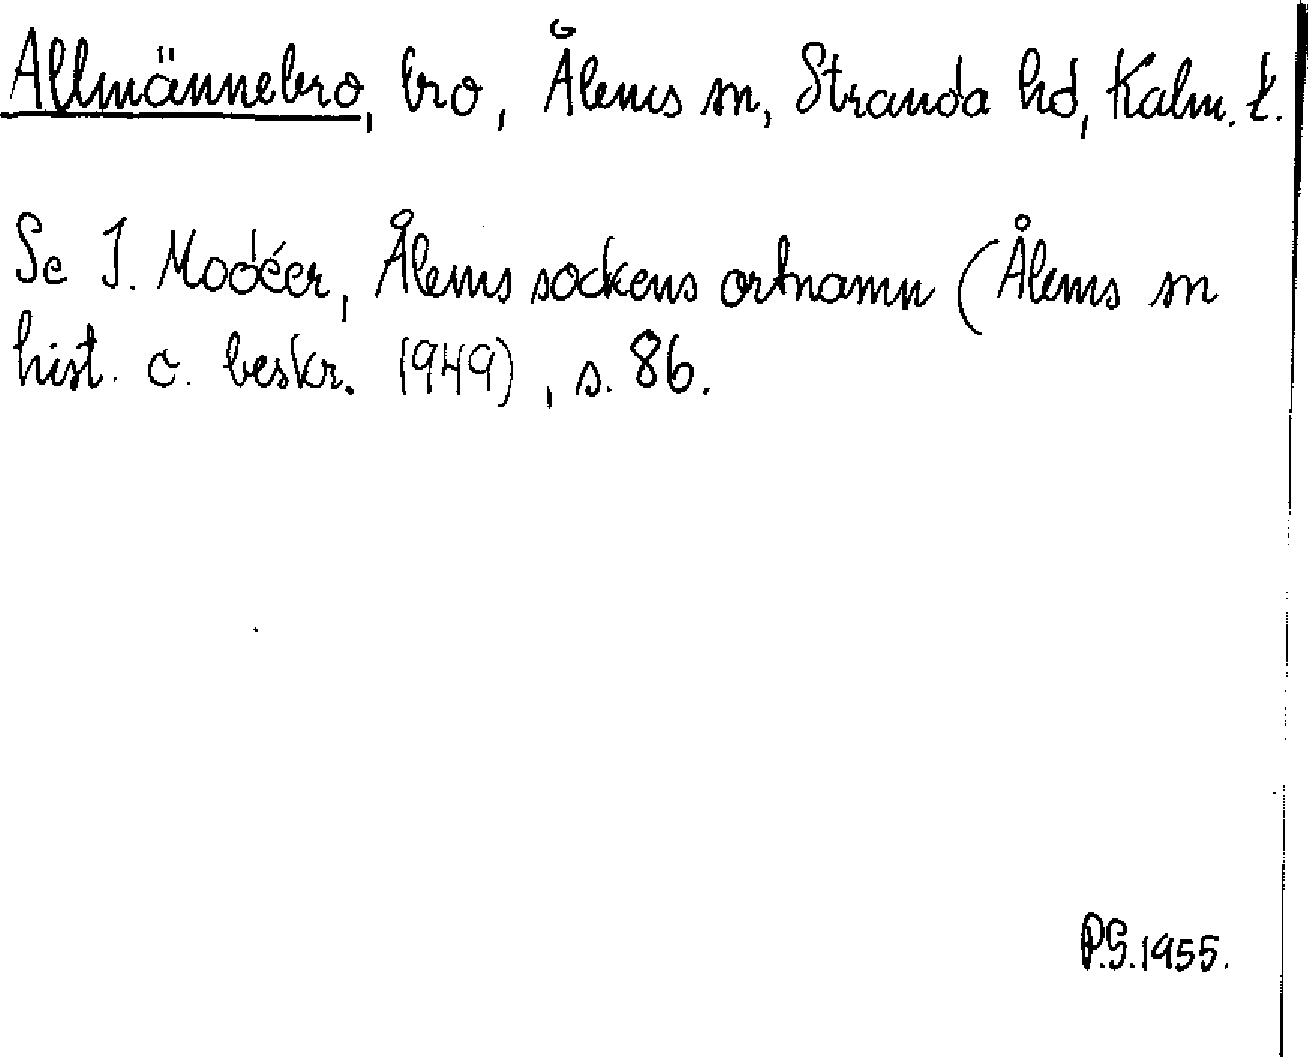 Allmännebro, bro, Ålems sn, Stranda hd, Kalm. l.
Se I. Modéer, Ålems sockens ortnamn (Ålems sn
hist. o. beskr. 1949), s. 86.
P.G. 1955.